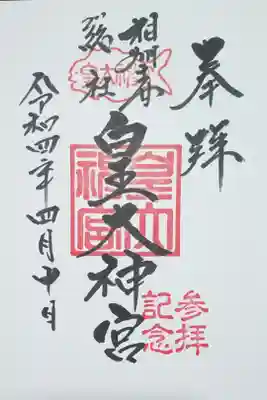 奉拝
相加春
総社
皇大神宮
令和四年四月十日
皇大神宮
参拝
記念